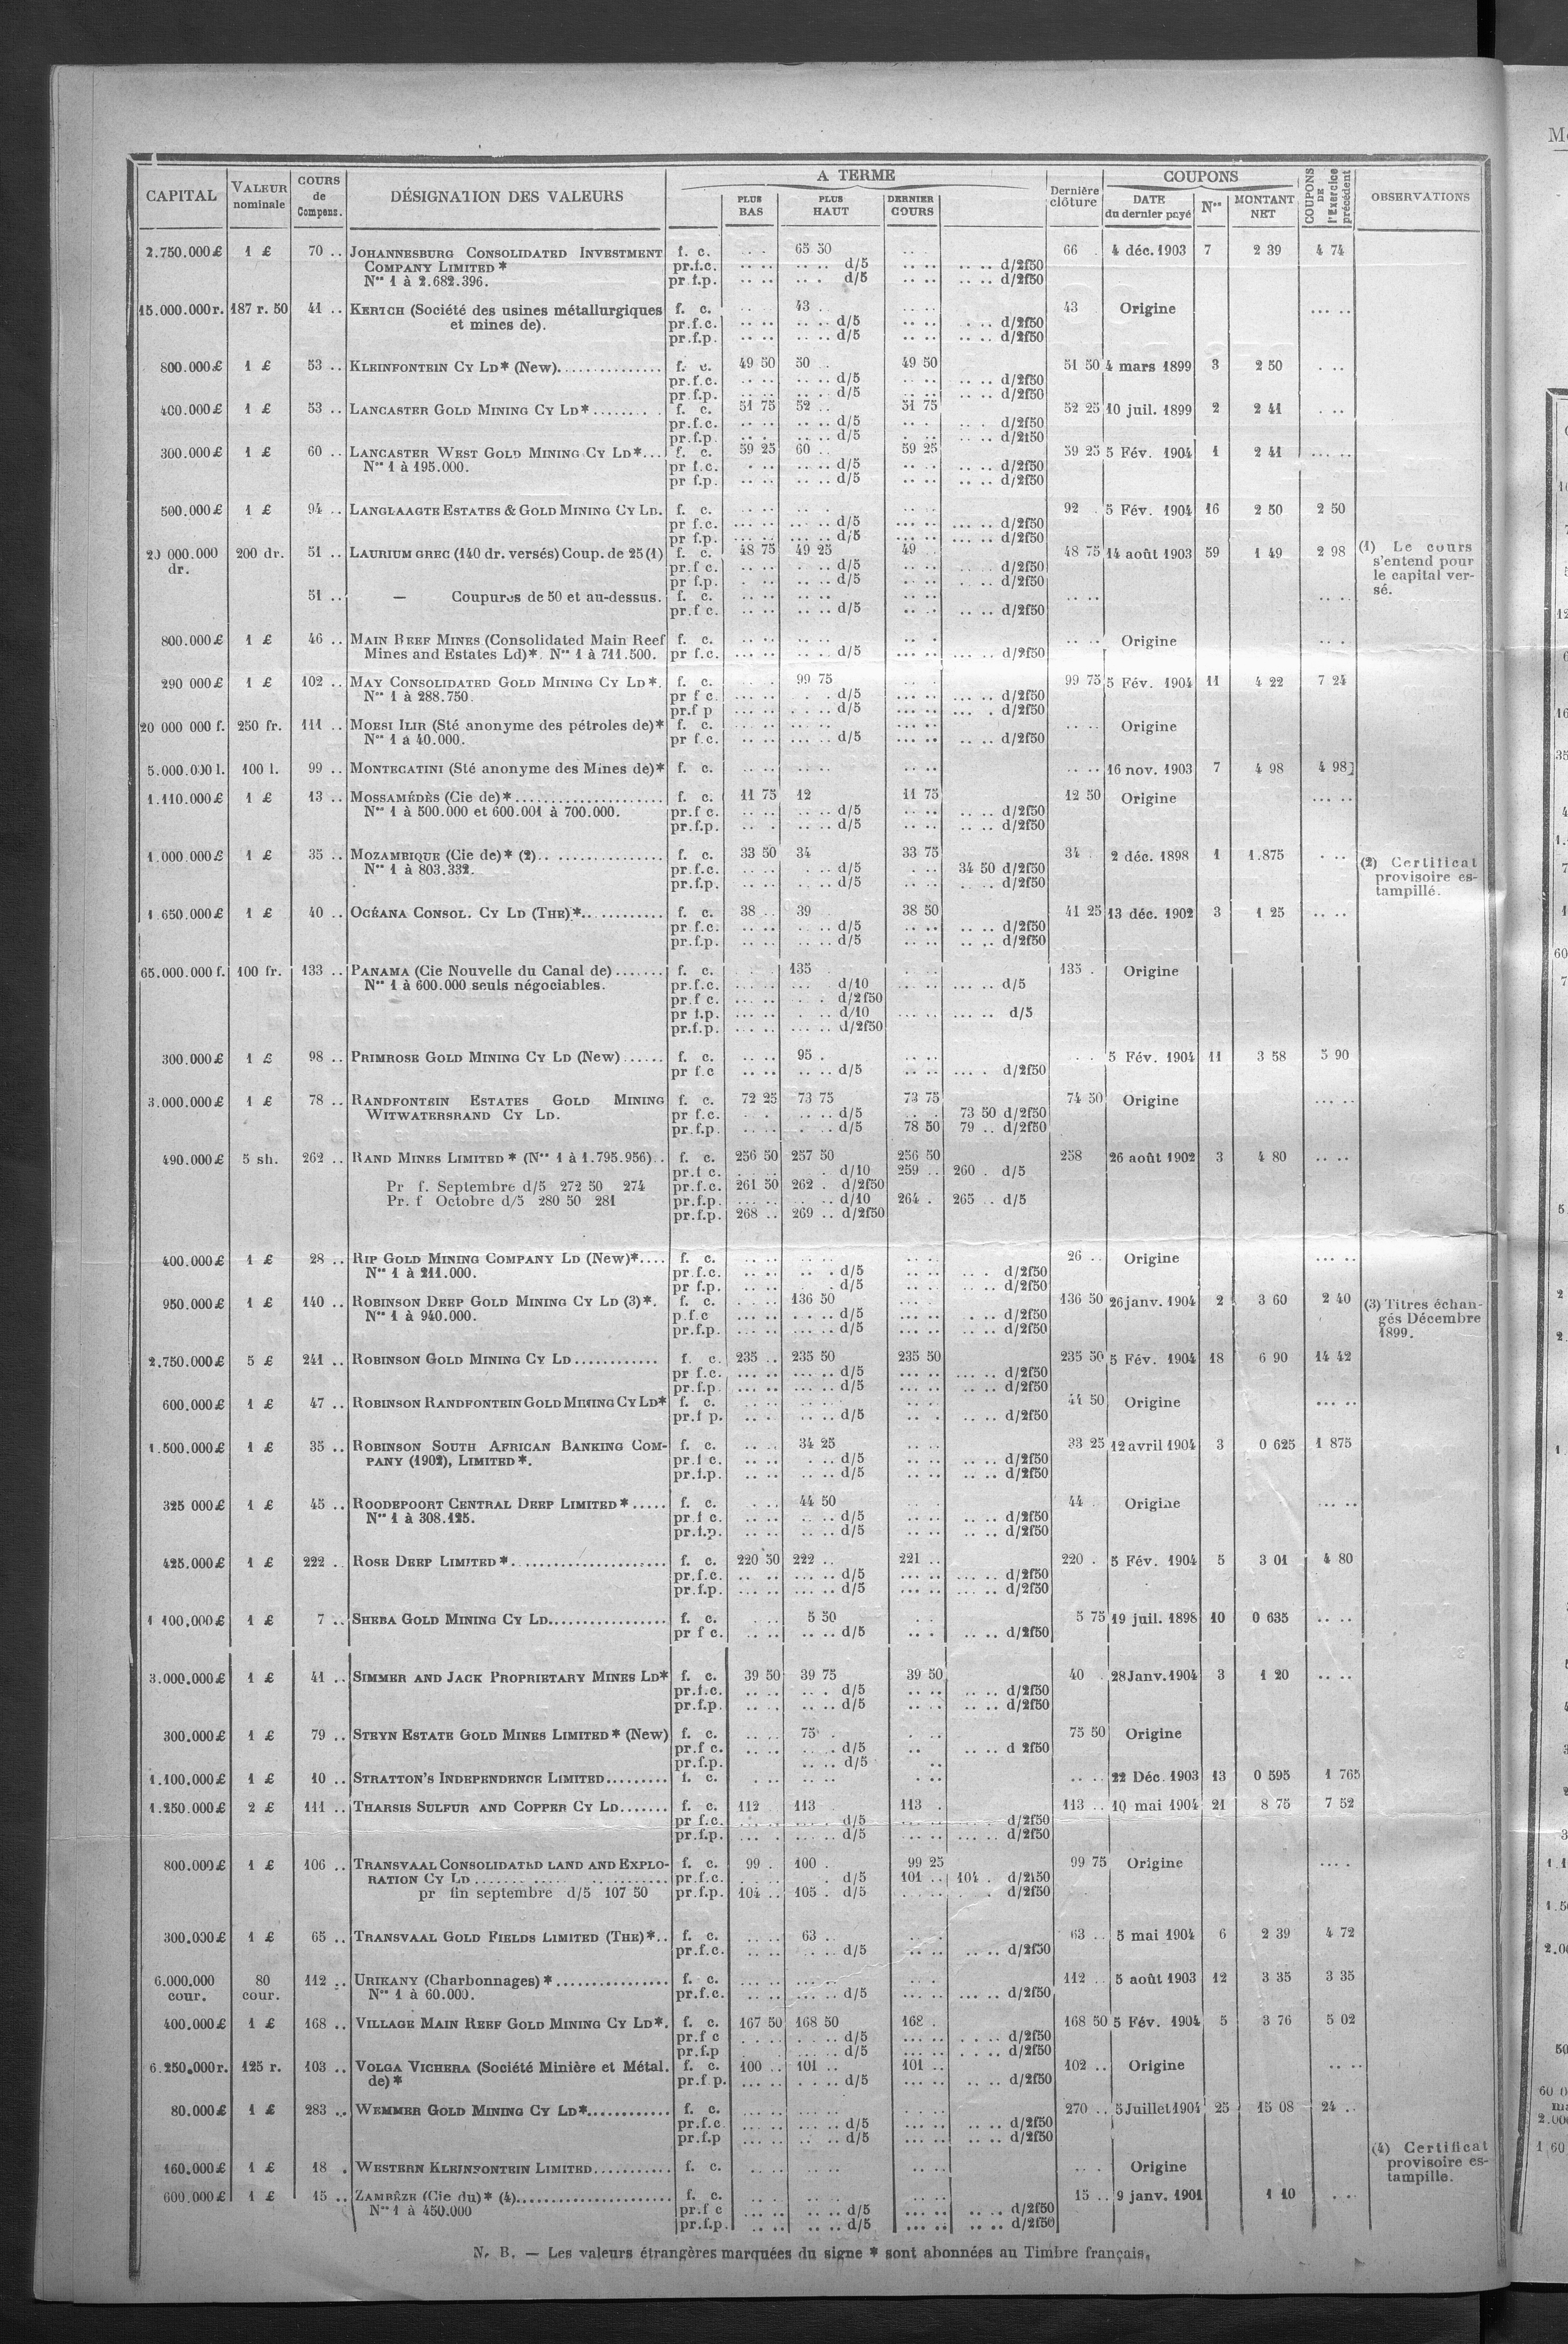 CAPITAL | VALEUR nominale | COURS de Compens. | DÉSIGNATION DES VALEURS | A TERME | PLUS BAS | PLUS HAUT | DERNIER COURS | Dernière clôture | COUPONS | DATE du dernier payé | Nos | MONTANT NET | COUPONS DE l'Exercice précédent | OBSERVATIONS
2.750.000 £ 1 £ 70 .. JOHANNESBURG CONSOLIDATED INVESTMENT f. c. 65 50 66 4 déc. 1903 7 2 39 4 74
COMPANY LIMITED * pr.f.c. d/5 d/2f50
Nos 1 à 2.682.396. pr f.p. d/5 d/2f50
15.000.000 r. 187 r. 50 41 .. KERTCH (Société des usines métallurgiques f. c. 43 .. 43 Origine
et mines de). pr.f.c. d/5 d/2f50
pr.f.p. d/5 d/2f50
800.000 £ 1 £ 53 .. KLEINFONTEIN CY LD* (New) f. c. 49 50 50 . 49 50 51 50 4 mars 1899 3 2 50
pr.f.c. d/5 d/2f50
pr.f.p. d/5 d/2f50
400.000 £ 1 £ 53 .. LANCASTER GOLD MINING CY LD* f. c. 51 75 52 .. 51 75 52 25 10 juil. 1899 2 2 41
pr.f.c. d/5 d/2f50
pr.f.p. d/5 d/2f50
300.000 £ 1 £ 60 .. LANCASTER WEST GOLD MINING CY LD* f. c. 59 25 60 .. 59 25 59 25 5 Fév. 1904 1 2 41
Nos 1 à 195.000. pr f.c. d/5 d/2f50
pr f.p. d/5 d/2f50
500.000 £ 1 £ 94 .. LANGLAAGTE ESTATES & GOLD MINING CY LD. f. c. 92 5 Fév. 1904 16 2 50 2 50
pr f.c. d/5 d/2f50
pr f.p. d/5 d/2f50
20 000.000 200 dr. 51 .. LAURIUM GREC (140 dr. versés) Coup. de 25 (1) f. c. 48 75 49 25 49 48 75 14 août 1903 59 1 49 2 98 (1) Le cours
dr. pr.f c. d/5 d/2f50 s'entend pour
pr f.p. d/5 d/2f50 le capital ver-
51 .. — Coupures de 50 et au-dessus. f. c. sé.
pr.f c. d/5 d/2f50
800.000 £ 1 £ 46 .. MAIN REEF MINES (Consolidated Main Reef f. c. Origine
Mines and Estates Ld)*. Nos 1 à 711.500. pr f.c. d/5 d/2f50
290 000 £ 1 £ 102 .. MAY CONSOLIDATED GOLD MINING CY LD*. f. c. 99 75 99 75 5 Fév. 1904 11 4 22 7 24
Nos 1 à 288.750. pr f c. d/5 d/2f50
pr.f p d/5 d/2f50
20 000 000 f. 250 fr. 111 .. MORSI ILIR (Sté anonyme des pétroles de)* f. c. Origine
Nos 1 à 40.000. pr f.c. d/5 d/2f50
5.000.000 l. 100 l. 99 .. MONTECATINI (Sté anonyme des Mines de)* f. c. 16 nov. 1903 7 4 98 4 98
1.110.000 £ 1 £ 13 .. MOSSAMÉDÈS (Cie de)* f. c. 11 75 12 11 75 12 50 Origine
Nos 1 à 500.000 et 600.001 à 700.000. pr.f c. d/5 d/2f50
pr.f.p. d/5 d/2f50
1.000.000 £ 1 £ 35 .. MOZAMBIQUE (Cie de)* (2) f. c. 33 50 34 33 75 34 2 déc. 1898 1 1.875 (2) Certificat
Nos 1 à 803.332. pr.f.c. d/5 34 50 d/2f50 provisoire es-
pr.f.p. d/5 d/2f50 tampillé.
1.650.000 £ 1 £ 40 .. OCÉANA CONSOL. CY LD (THE)* f. c. 38 .. 39 38 50 41 25 13 déc. 1902 3 1 25
pr f.c. d/5 d/2f50
pr.f.p. d/5 d/2f50
65.000.000 f. 100 fr. 133 .. PANAMA (Cie Nouvelle du Canal de) f. c. 135 135 . Origine
Nos 1 à 600.000 seuls négociables. pr.f.c. d/10 d/5
pr f c. d/2f50
pr f.p. d/10 d/5
pr.f.p. d/2f50
300.000 £ 1 £ 98 .. PRIMROSE GOLD MINING CY LD (New) f. c. 95 . 5 Fév. 1904 11 3 58 5 90
pr f.c d/5 d/2f50
3.000.000 £ 1 £ 78 .. RANDFONTEIN ESTATES GOLD MINING f. c. 72 25 73 75 73 75 74 50 Origine
WITWATERSRAND CY LD. pr f.c. d/5 73 50 d/2f50
pr.f.p. d/5 78 50 79 .. d/2f50
490.000 £ 5 sh. 262 .. RAND MINES LIMITED * (Nos 1 à 1.795.956) f. c. 256 50 257 50 256 50 258 26 août 1902 3 4 80
pr.f c. d/10 259 .. 260 . d/5
Pr f. Septembre d/5 272 50 274 pr.f.c. 261 50 262 . d/2f50
Pr. f Octobre d/5 280 50 281 pr.f.p. d/10 264 . 265 .. d/5
pr.f.p. 268 .. 269 .. d/2f50
400.000 £ 1 £ 28 .. RIP GOLD MINING COMPANY LD (New)* f. c. 26 .. Origine
Nos 1 à 211.000. pr f.c. d/5 d/2f50
pr f.p. d/5 d/2f50
950.000 £ 1 £ 140 .. ROBINSON DEEP GOLD MINING CY LD (3)*. f. c. 136 50 136 50 26 janv. 1904 2 3 60 2 40 (3) Titres échan-
Nos 1 à 940.000. p.f.c d/5 d/2f50 gés Décembre
pr.f.p. d/5 d/2f50 1899.
2.750.000 £ 5 £ 241 .. ROBINSON GOLD MINING CY LD f. c. 235 .. 235 50 235 50 235 50 5 Fév. 1904 18 6 90 14 42
pr f.c. d/5 d/2f50
pr.f.p. d/5 d/2f50
600.000 £ 1 £ 47 .. ROBINSON RANDFONTEIN GOLD MINING CY LD* f. c. 44 50 Origine
pr.f p. d/5 d/2f50
1.500.000 £ 1 £ 35 .. ROBINSON SOUTH AFRICAN BANKING COM- f. c. 34 25 33 25 12 avril 1904 3 0 625 1 875
PANY (1902), LIMITED *. pr.f c. d/5 d/2f50
pr.f.p. d/5 d/2f50
325 000 £ 1 £ 45 .. ROODEPOORT CENTRAL DEEP LIMITED * f. c. 44 50 44 Origine
Nos 1 à 308.125. pr.f c. d/5 d/2f50
pr.f.p. d/5 d/2f50
425.000 £ 1 £ 222 .. ROSE DEEP LIMITED * f. c. 220 50 222 .. 221 .. 220 . 5 Fév. 1904 5 3 01 4 80
pr.f.c. d/5 d/2f50
pr.f.p. d/5 d/2f50
1 100.000 £ 1 £ 7 .. SHEBA GOLD MINING CY LD f. c. 5 50 5 75 19 juil. 1898 10 0 635
pr f c. d/5 d/2f50
3.000.000 £ 1 £ 41 .. SIMMER AND JACK PROPRIETARY MINES LD* f. c. 39 50 39 75 39 50 40 28 Janv. 1904 3 1 20
pr.f.c. d/5 d/2f50
pr.f.p. d/5 d/2f50
300.000 £ 1 £ 79 .. STEYN ESTATE GOLD MINES LIMITED * (New) f. c. 75 75 50 Origine
pr.f c. d/5 d 2f50
pr.f.p. d/5
1.100.000 £ 1 £ 10 .. STRATTON'S INDEPENDENCE LIMITED f. c. 22 Déc. 1903 13 0 595 1 765
1.250.000 £ 2 £ 111 .. THARSIS SULFUR AND COPPER CY LD f. c. 112 113 113 . 113 .. 10 mai 1904 21 8 75 7 52
pr f.c. d/5 d/2f50
pr.f.p. d/5 d/2f50
800.000 £ 1 £ 106 .. TRANSVAAL CONSOLIDATED LAND AND EXPLO- f. c. 99 . 100 . 99 25 99 75 Origine
RATION CY LD pr.f.c. d/5 101 .. 104 . d/2f50
pr fin septembre d/5 107 50 pr.f.p. 104 .. 105 . d/5 d/2f50
300.000 £ 1 £ 65 .. TRANSVAAL GOLD FIELDS LIMITED (THE)* f. c. 63 .. 63 .. 5 mai 1904 6 2 39 4 72
pr.f.c. d/5 d/2f50
6.000.000 80 112 .. URIKANY (Charbonnages) * f. c. 112 .. 5 août 1903 12 3 35 3 35
cour. cour. Nos 1 à 60.000. pr.f.c. d/5 d/2f50
400.000 £ 1 £ 168 .. VILLAGE MAIN REEF GOLD MINING CY LD*. f. c. 167 50 168 50 168 . 168 50 5 Fév. 1904 5 3 76 5 02
pr.f c d/5 d/2f50
pr.f.p d/5 d/2f50
6.250.000 r. 125 r. 103 .. VOLGA VICHERA (Société Minière et Métal. f. c. 100 .. 101 .. 101 .. 102 .. Origine
de) * pr.f p. d/5 d/2f50
80.000 £ 1 £ 283 .. WEMMER GOLD MINING CY LD* f. c. 270 .. 5 Juillet 1904 25 15 08 24 ..
pr.f.c d/5 d/2f50
pr.f.p d/5 d/2f50 (4) Certificat
160.000 £ 1 £ 18 . WESTERN KLEINFONTEIN LIMITED f. c. Origine provisoire es-
tampille.
600.000 £ 1 £ 15 .. ZAMBÈZE (Cie du)* (4) f. c. 15 .. 9 janv. 1901 1 10
Nos 1 à 450.000 pr.f c d/5 d/2f50
pr.f.p. d/5 d/2f50
N. B. — Les valeurs étrangères marquées du signe * sont abonnées au Timbre français.